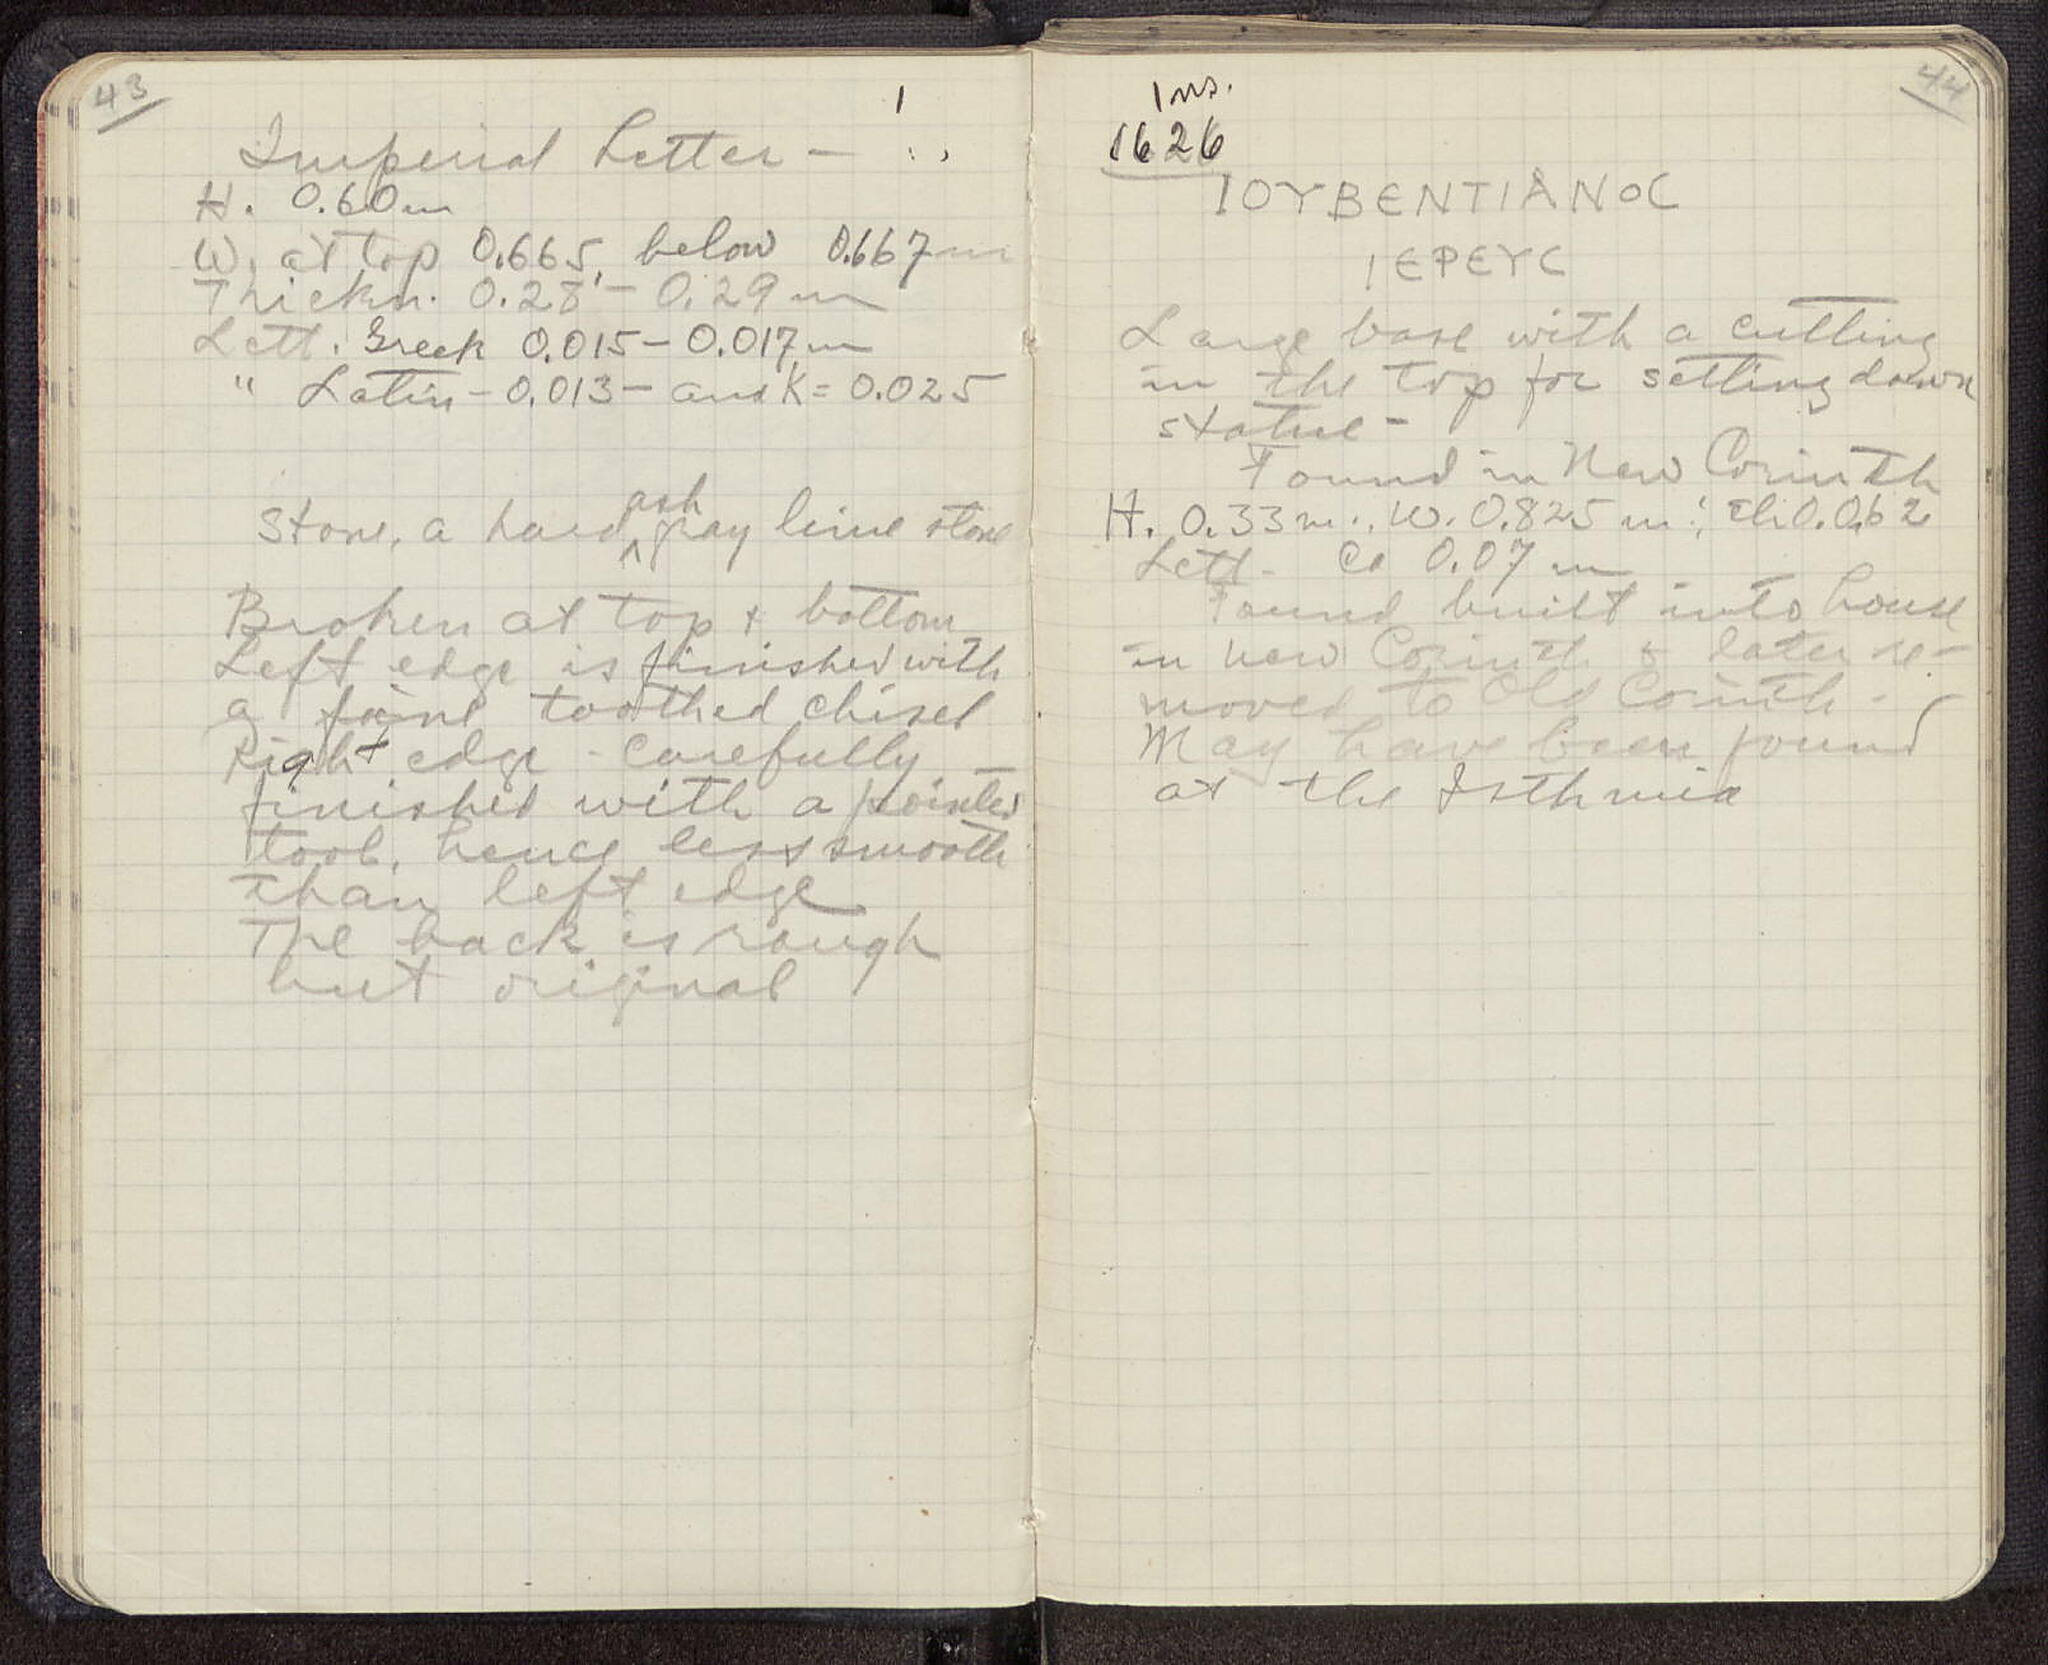 43
1
Imperial Letter –
H. 0.60 m
W. at top 0.665, below 0.667 m
Thickn. 0.28 – 0.29 m
Lett. Greek 0.015 – 0.017 m
" Latin – 0.013 – and K = 0.025
Stone, a hard ash gray lime stone
Broken at top + bottom
Left edge is finished with
a fine toothed chisel
Right edge – carefully
finished with a pointed
tool, hence less smooth
than left edge
The back is rough
but original
44
Ins.
1626
ΙΟΥΒΕΝΤΙΑΝΟC
ΙΕΡΕΥC
Large base with a cutting
in the top for setting down
statue –
Found in New Corinth
H. 0.33 m., W. 0.825 m; Th. 0.062
Lett. Ca 0.07 m
Found built into house
in New Corinth & later re-
moved to Old Corinth –
May have been found
at the Isthmia